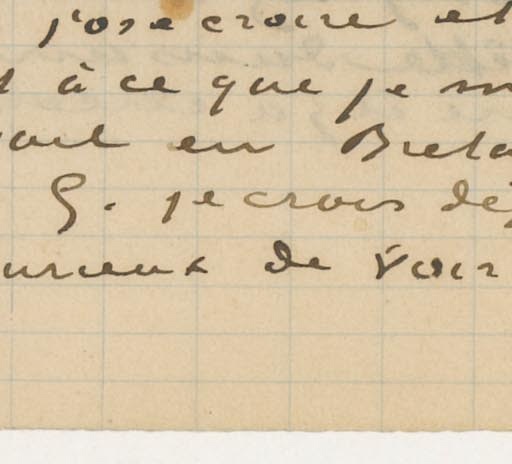 j'ose croire et
à ce que je m
en Breta
G. je crois dej
urieux de voir